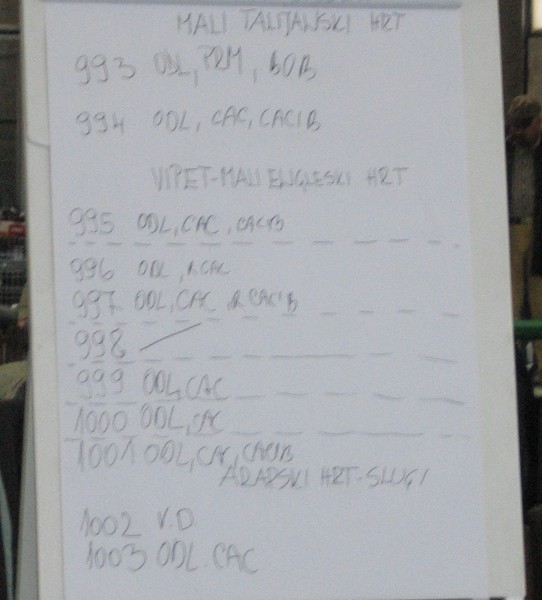 MALI TALIJANSKI HRT
993 ODL, PRM, BOB
994 ODL, CAC, CACIB
VIPET-MALI ENGLESKI HRT
995 ODL, CAC, CACIB
996 ODL, RCAC
997 ODL, CAC, RCACIB
998 —
999 ODL, CAC
1000 ODL, CAC
1001 ODL, CAC, CACIB
ARAPSKI HRT-SLUGI
1002 V.D
1003 ODL. CAC